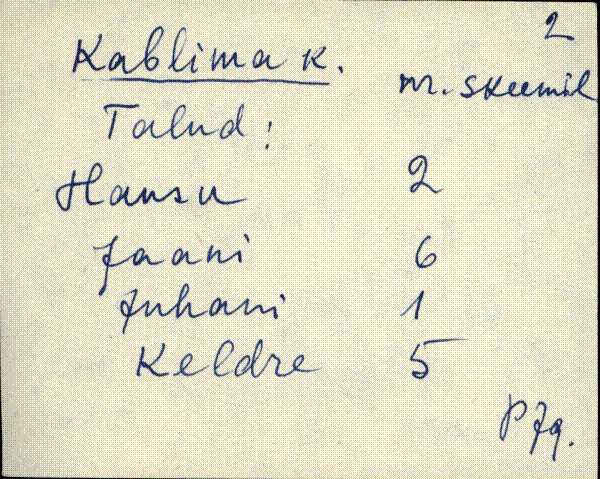 2
Kablima k.
nr. skeemil
Talud:
Hansu 2
Jaani 6
Juhani 1
Keldre 5
P Jg.